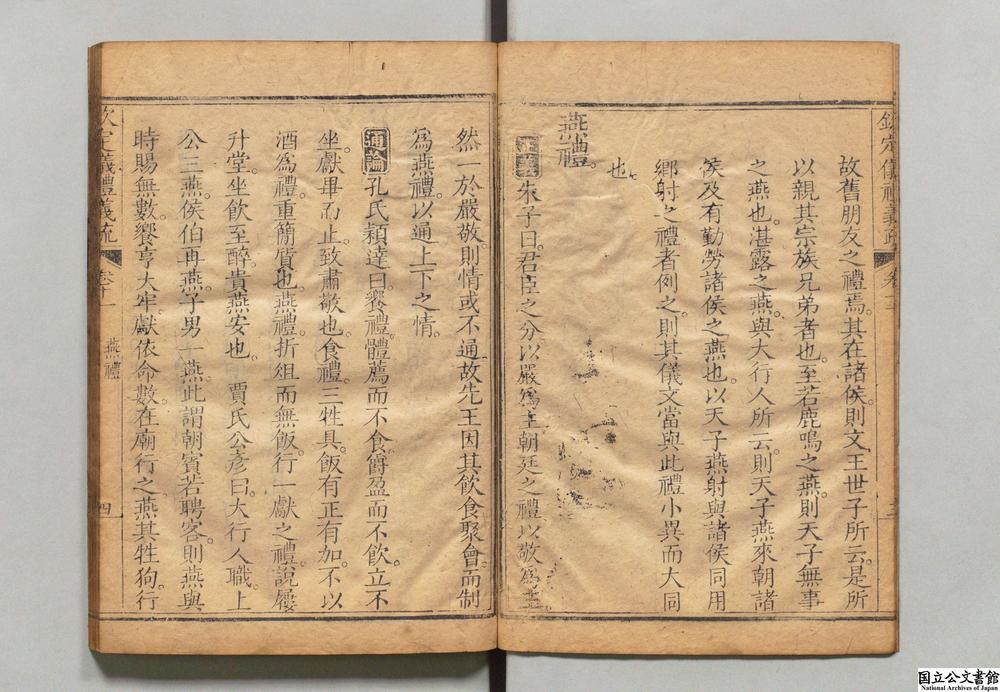 欽定儀禮義疏 卷十一 三
故舊朋友之禮焉。其在諸侯。則文王世子所云。是所
以親其宗族兄弟者也。至若鹿鳴之燕。則天子無事
之燕也。湛露之燕。與大行人所云。則天子燕來朝諸
侯及有勤勞諸侯之燕也。以天子燕射與諸侯同用
鄉射之禮者例之。則其儀文當與此禮小異而大同
也。
燕禮。
正義朱子曰。君臣之分以嚴為主。朝廷之禮以敬為主。
然一於嚴敬。則情或不通。故先王因其飲食聚會。而制
為燕禮。以通上下之情。
通論孔氏穎達曰。饗禮。體薦而不食。爵盈而不飲。立不
坐。獻畢而止。致肅敬也。食禮。三牲具。飯有正有加。不以
酒為禮。重簡質也。燕禮。折俎而無飯。行一獻之禮。說屨
升堂。坐飲至醉。貴燕安也。 賈氏公彥曰。大行人職。上
公三燕。侯伯再燕。子男一燕。此謂朝賓。若聘客。則燕與
時賜無數。饗亨大牢。獻依命數。在廟行之。燕其牲狗。行
欽定儀禮義疏 卷十一 燕禮 四
国立公文書館
National Archives of Japan